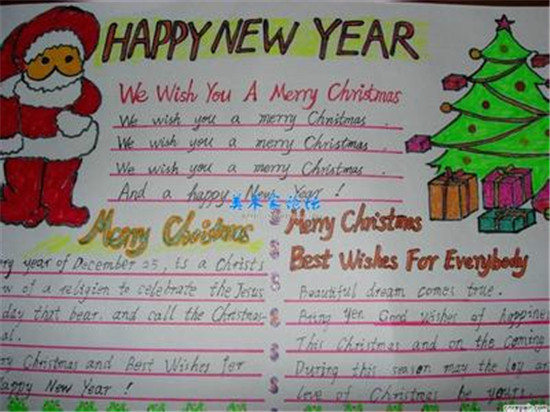 HAPPY NEW YEAR
We Wish You A Merry Christmas
We wish you a merry Christmas.
We wish you a merry Christmas.
We wish you a merry Christmas.
And a happy New Year!
Merry Christmas
ry year of December 25, is a Christs
w of a religion to celebrate the Jesus
day that bear, and call the Christmas
al.
ry Christmas and Best Wishes for
appy New Year!
Merry Christmas
Best Wishes For Everybody
Beautiful dream comes true.
Bring you Good wishes of happine
This Christmas and on the coming
During this season may the joy an
love of Christmas be yours